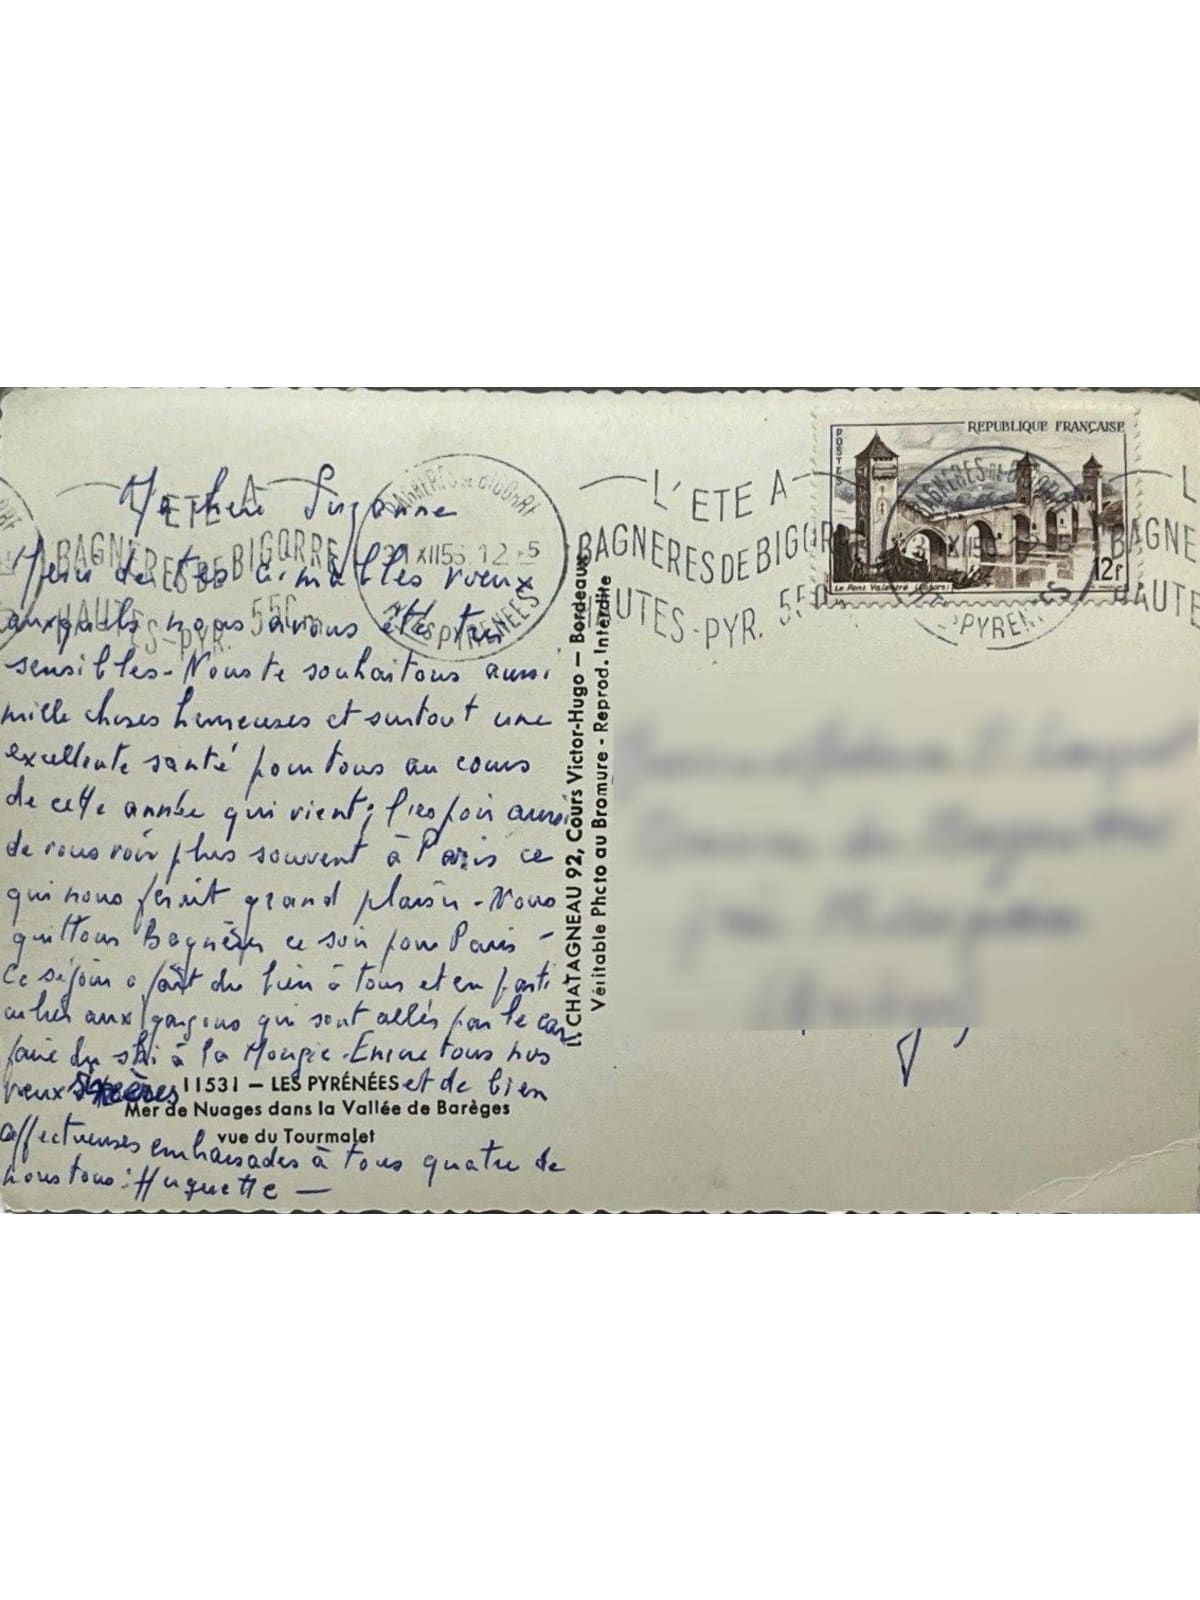 Ma chère Suzanne
Merci de tes aimables vœux
auxquels nous avons été très
sensibles - Nous te souhaitons aussi
mille choses heureuses et surtout une
excellente santé pour tous au cours
de cette année qui vient; l'espoir aussi
de vous voir plus souvent à Paris ce
qui nous ferait grand plaisir - Nous
quittons Bagnères ce soir pour Paris -
Ce séjour a fait du bien à tous et en parti
culier aux garçons qui sont allés par le car
faire du ski à la Mongie. Encore tous nos
vœux sincères et de bien
affectueuses embrassades à tous quatre de
nous tous : Huguette —
11531 — LES PYRÉNÉES
Mer de Nuages dans la Vallée de Barèges
vue du Tourmalet
L. CHATAGNEAU 92, Cours Victor-Hugo — Bordeaux
Véritable Photo au Bromure - Reprod. Interdite
L'ETE A
BAGNERES DE BIGORRE
HAUTES-PYR. 550
BAGNERES DE BIGORRE
XII 12
HTES PYRENEES
L'ETE A
BAGNERES DE BIGOR
AUTES-PYR. 550
BAGNERES DE BIGORRE
XII
PYREN
L
BAGNE
HAUTE
REPUBLIQUE FRANÇAISE
POSTES
12f
Le Pont Valentré (Cahors)